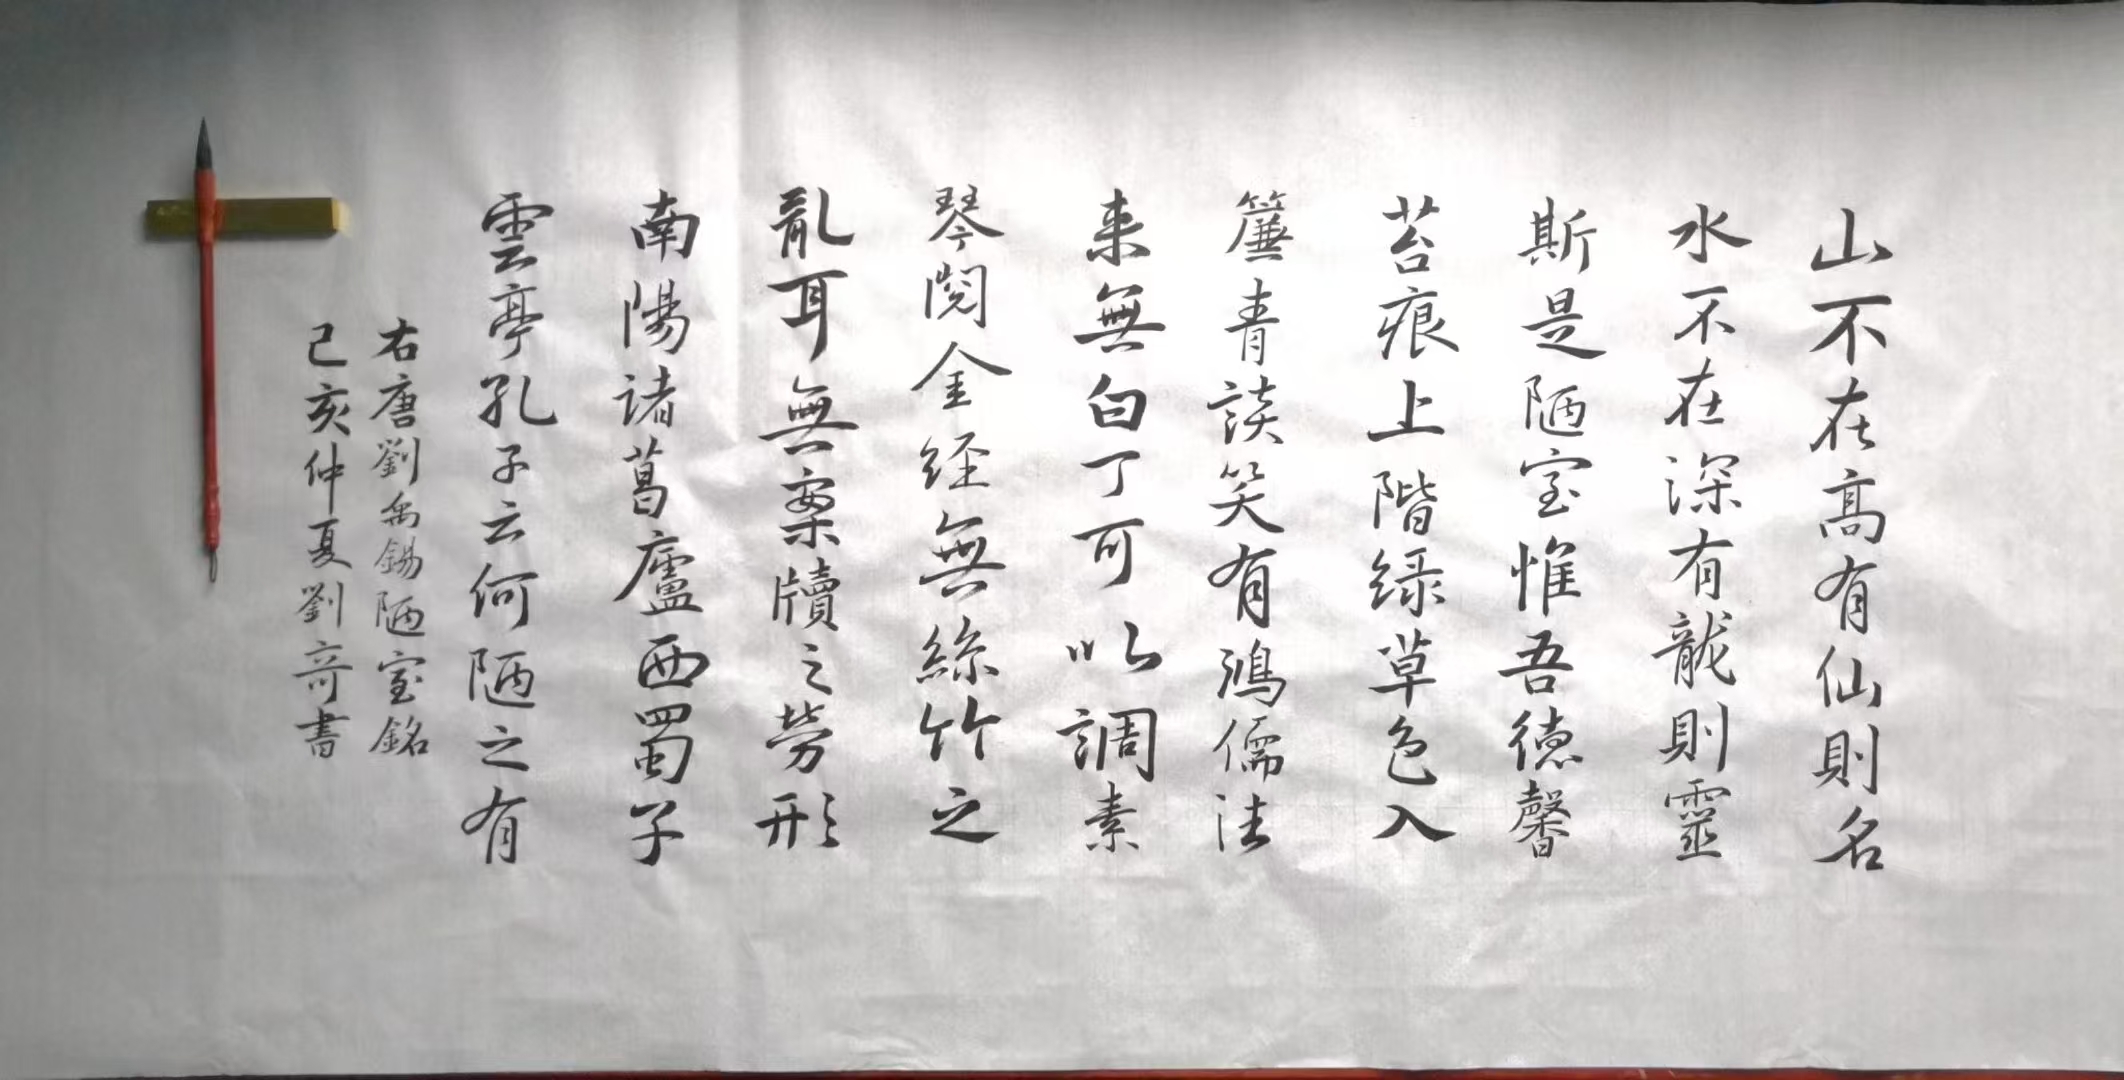 山不在高有仙則名
水不在深有龍則靈
斯是陋室惟吾德馨
苔痕上階緑草色入
簾青談笑有鴻儒往
来無白丁可以調素
琴閱金经無絲竹之
亂耳無案牘之勞形
南陽諸葛廬西蜀子
雲亭孔子云何陋之有
右唐劉禹錫陋室銘
己亥仲夏劉奇書